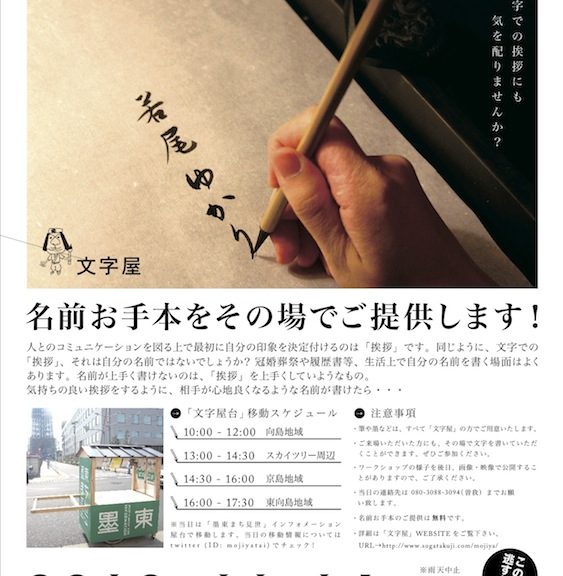 字での挨拶にも
気を配りませんか？
若尾ゆかり
文字屋
名前お手本をその場でご提供します！
人とのコミュニケーションを図る上で最初に自分の印象を決定付けるのは「挨拶」です。同じように、文字での
「挨拶」、それは自分の名前ではないでしょうか？ 冠婚葬祭や履歴書等、生活上で自分の名前を書く場面はよく
あります。名前が上手く書けないのは、「挨拶」を上手くしていようなもの。
気持ちの良い挨拶をするように、相手が心地良くなるような名前が書けたら・・・
墨東
「文字屋台」移動スケジュール
10:00 - 12:00 向島地域
13:00 - 14:30 スカイツリー周辺
14:30 - 16:00 京島地域
16:00 - 17:30 東向島地域
※当日は「墨東まち見世」インフォメーション
屋台で移動します。当日の移動情報については
twitter (ID: mojiyatai) でチェック！
注意事項
・筆や墨などは、すべて「文字屋」の方でご用意いたします。
・ご来場いただいた方にも、その場で文字を書いていただ
くことができます。ぜひご参加ください。
・ワークショップの様子を後日、画像・映像で公開するこ
とがありますので、ご了承ください。
・当日の連絡先は 080-3088-3094(曽我) までお願
い致します。
・名前お手本のご提供は無料です。
・詳細は「文字屋」WEBSITE をご覧下さい。
URL→http://www.sogatakuji.com/mojiya/
※雨天中止
この
逃す